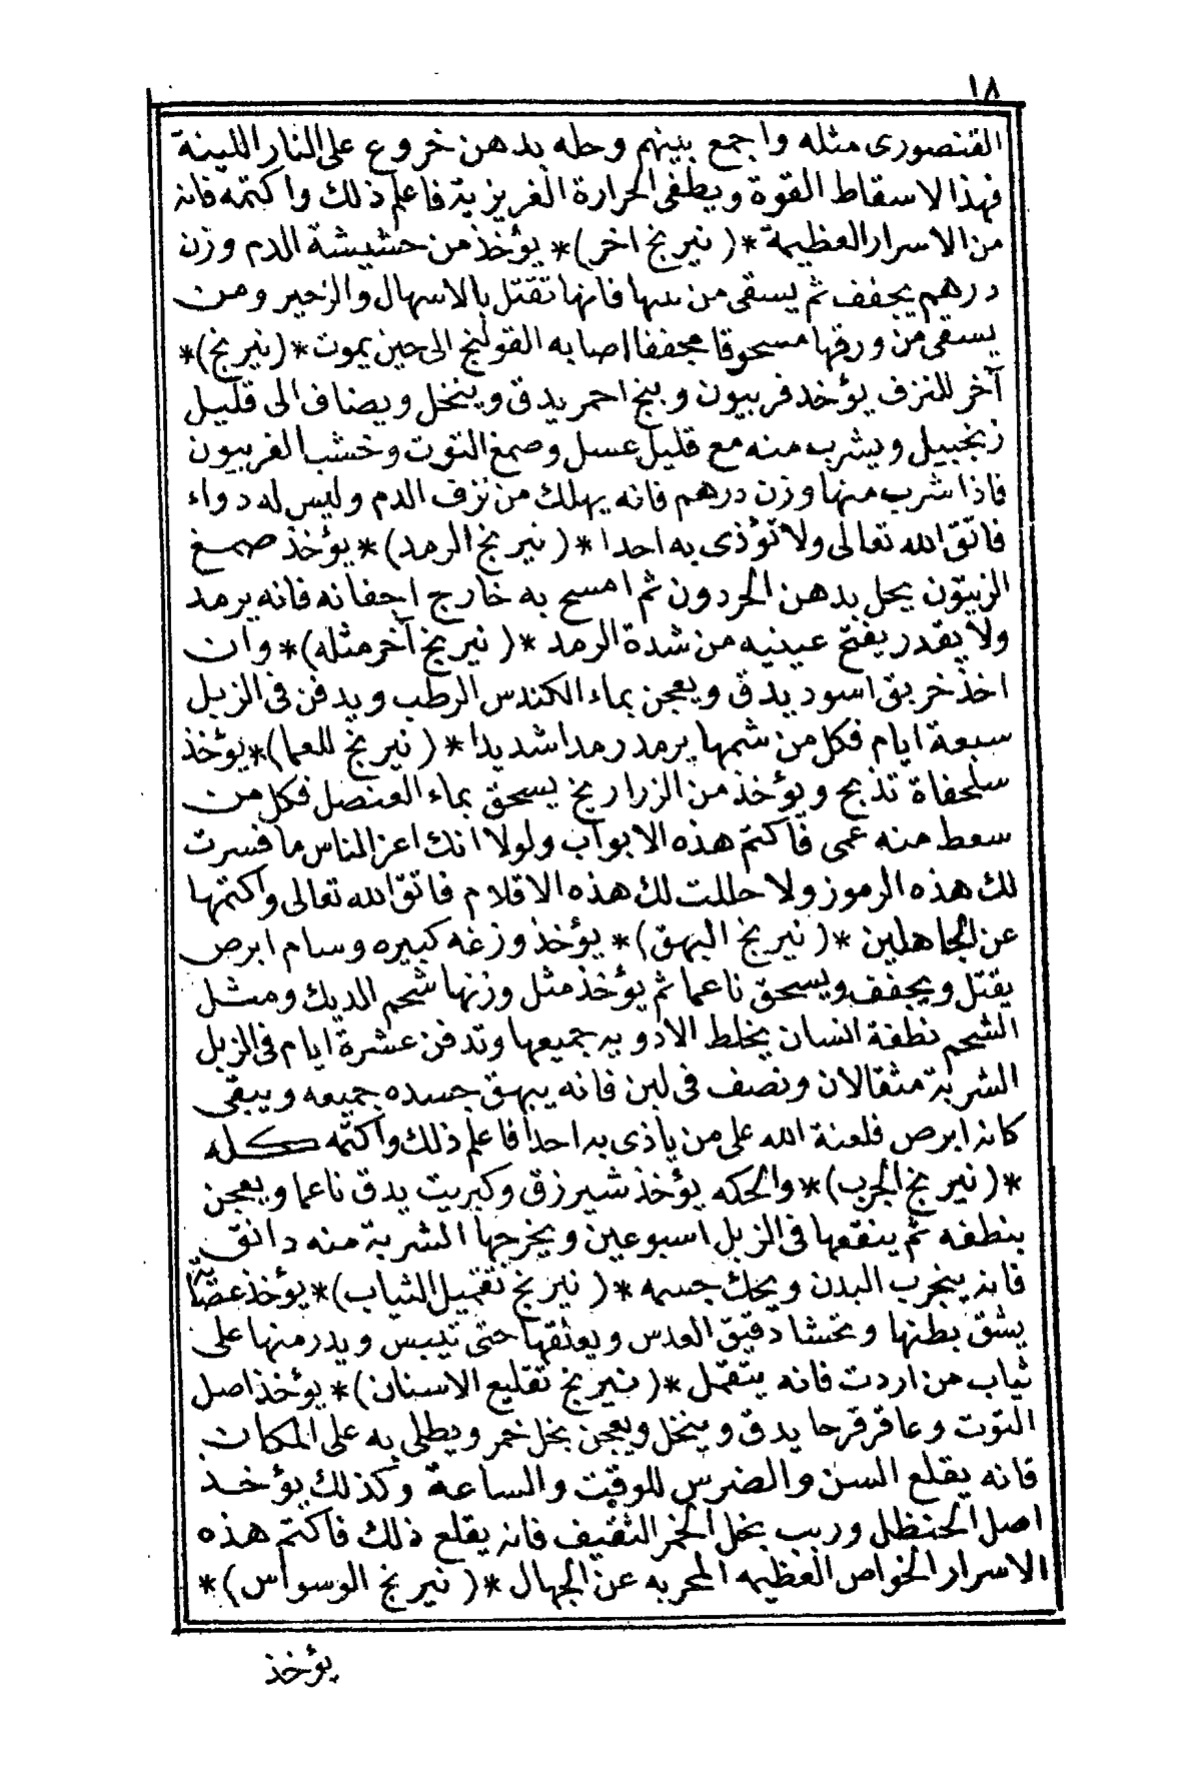 ١٨
القنصورى مثله واجمع بينهم وحله بدهن خروع على النار اللينة
فهذا لاسقاط القوة ويطفى الحرارة الغريزية فاعلم ذلك واكتمه فانه
من الاسرار العظيمة *(نيرنج اخر)* يؤخذ من حشيشة الدم وزن
درهم يجفف ثم يسقى من فانها تقتل بالاسهال والزحير ومن
يسقى من ورقها مسحوقا مجففا اصابه القولنج الى حين يموت *(نيرنج)*
آخر للنزف يؤخد فربيون وبنج احمر يدق وينخل ويضاف الى قليل
زنجبيل ويشرب منه مع قليل عسل وصمغ التوت وخشب الفربيون
فاذا شرب منها وزن درهم فانه يهلك من نزف الدم وليس له دواء
فاتق الله تعالى ولا تؤذى به احدا *(نيرنج الرمد)* يؤخذ صمغ
الزيتون يحل بدهن الحردون ثم امسح به خارج اجفانه فانه يرمد
ولا يقدر يفتح عينيه من شدة الرمد *(نيرنج آخر مثله)* وان
اخذ خربق اسود يدق ويعجن بماء الكندس الرطب ويدفن فى الزبل
سبعة ايام فكل من شمها يرمد رمدا شديدا *(نيرنج للعما)* يؤخذ
سلحفاة تذبح ويؤخذ من الزراريخ يسحق بماء العنصل فكل من
سعط منه عمى فاكتم هذه الابواب ولولا انك اعز الناس ما فسرت
لك هذه الرموز ولا حللت لك هذه الاقلام فاتق الله تعالى واكتمها
عن الجاهلين *(نيرنج البهق)* يؤخذ وزغه كبيره وسام ابرص
يقتل ويجفف ويسحق ناعما ثم يؤخذ مثل وزنها شحم الديك ومثل
الشحم نطفة انسان يخلط الادويه جميعها وتدفن عشرة ايام فى الزبل
الشربة مثقالان ونصف فى لبن فانه يبهق جسده جميعه ويبقى
كانه ابرص فلعنة الله على من ياذى به احدا فاعلم ذلك واكتمه كله
*(نيرنج الجرب)* والحكه يؤخذ شيرزق وكبريت يدق ناعما ويعجن
بنطفه ثم ينقعها فى الزبل اسبوعين ويخرجها الشربة منه دانق
فانه ينجرب البدن ويحك جسمه *(نيرنج تقميل الثياب)* يؤخذ عضاية
يشق بطنها وتحشا دقيق العدس ويعلقها حتى تيبس ويدر منها على
ثياب من اردت فانه يتقمل *(نيرنج تقليع الاسنان)* يؤخذ اصل
التوت وعاقر قرحا يدق وينخل ويعجن بخل خمر ويطلى به على المكان
فانه يقلع السن والضرس للوقت والساعة وكذلك يؤخذ
اصل الحنظل وربب بخل الخمر الثقيف فانه يقلع ذلك فاكتم هذه
الاسرار الخواص العظيمه المجربه عن الجهال *(نيرنج الوسواس)*
يؤخذ